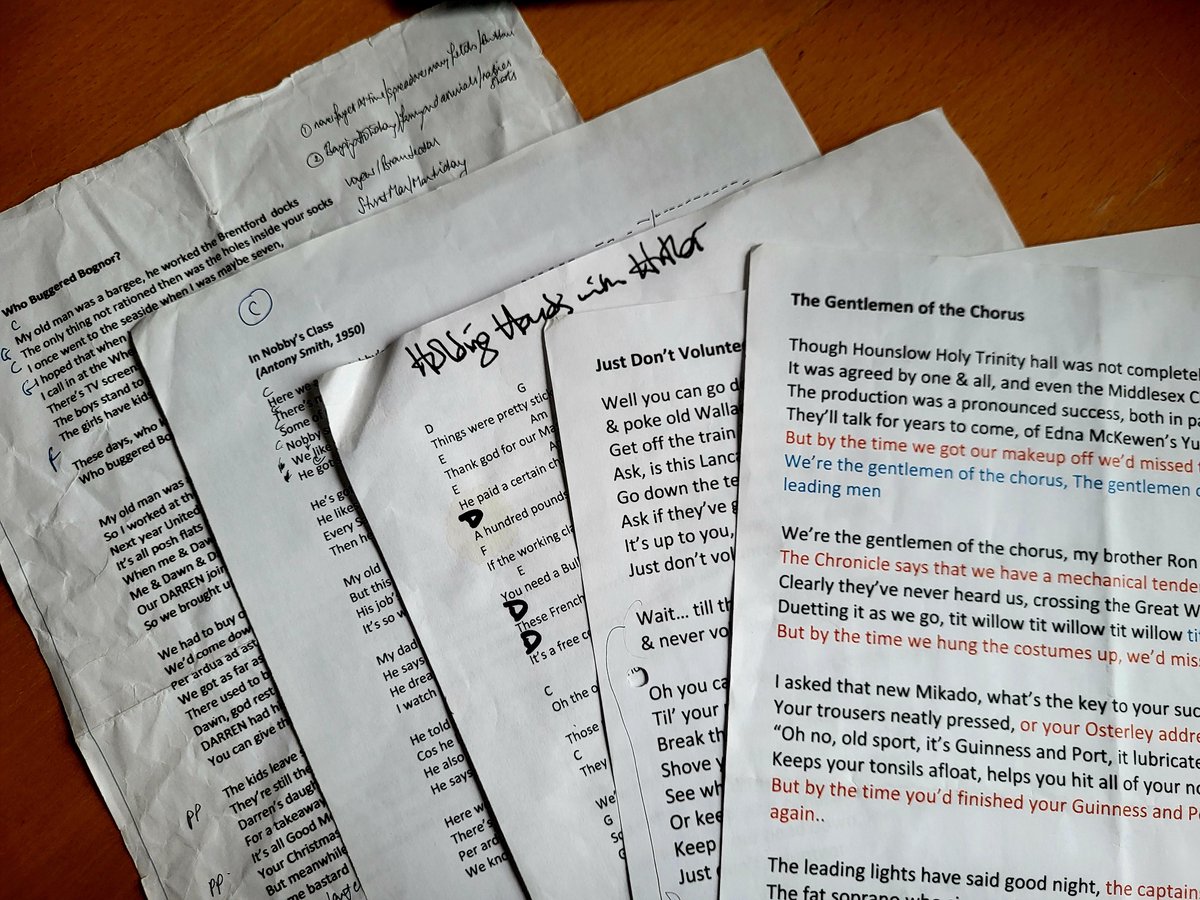 Who Buggered Bognor?
C
My old man was a bargee, he worked the Brentford docks
G The only thing not rationed then was the holes inside your socks
C I once went to the seaside when I was maybe seven,
G I hoped that when
I call in at the Whe
There's TV screen
The boys stand to
The girls have kids
F These days, who
Who buggered Bo
My old man was
So I worked at th
Next year United
It's all posh flats
When me & Daw
Me & Dawn & D
Our DARREN join
So we brought u
We had to buy o
We'd come down
Per ardua ad ast
We got as far as
There used to b
Dawn, god rest
DARREN had h
You can give th
PP The kids leave
They're still the
Darren's daugh
For a takeaway
It's all Good M
Your Christmas
PP. But meanwhile
me bastard
C
In Nobby's Class
(Antony Smith, 1950)
Here we
There's
Some
Nobby
We like
He got
He's go
He like
Every S
Then h
My old
But this
His job'
It's so w
My dad
He says
He drea
I watch
He told
Cos he
He also
He says
Here w
There's
Per ard
We kno
Holding Hands with Hitler
D G
Things were pretty stic
E Am
Thank god for our Ma
E A
He paid a certain ch
D
A hundred pounds
F
If the working cla
E
You need a Bull
D
These French
D
It's a free co
C
Oh the o
Those
C
They
We'
G
So
Just Don't Voluntee
Well you can go d
& poke old Walla
Get off the train
Ask, is this Lanca
Go down the te
Ask if they've g
It's up to you,
Just don't vol
Wait... till th
& never vo
Oh you ca
Til' your
Break th
Shove y
See wh
Or kee
Keep
Just
The Gentlemen of the Chorus
Though Hounslow Holy Trinity hall was not completel
It was agreed by one & all, and even the Middlesex C
The production was a pronounced success, both in pa
They'll talk for years to come, of Edna McKewen's Yu
But by the time we got our makeup off we'd missed t
We're the gentlemen of the chorus, The gentlemen o
leading men
We're the gentlemen of the chorus, my brother Ron
The Chronicle says that we have a mechanical tende
Clearly they've never heard us, crossing the Great W
Duetting it as we go, tit willow tit willow tit willow tit
But by the time we hung the costumes up, we'd miss
I asked that new Mikado, what's the key to your suc
Your trousers neatly pressed, or your Osterley addre
"Oh no, old sport, it's Guinness and Port, it lubricate
Keeps your tonsils afloat, helps you hit all of your no
But by the time you'd finished your Guinness and Po
again..
The leading lights have said good night, the captain
The fat soprano who